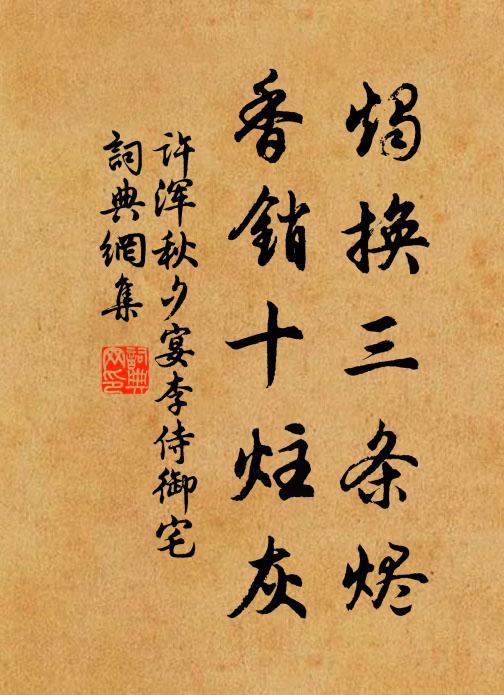 燭换三条烬
香銷十炷灰
許浑秋夕宴李侍御宅
詞典網集
詞典网印